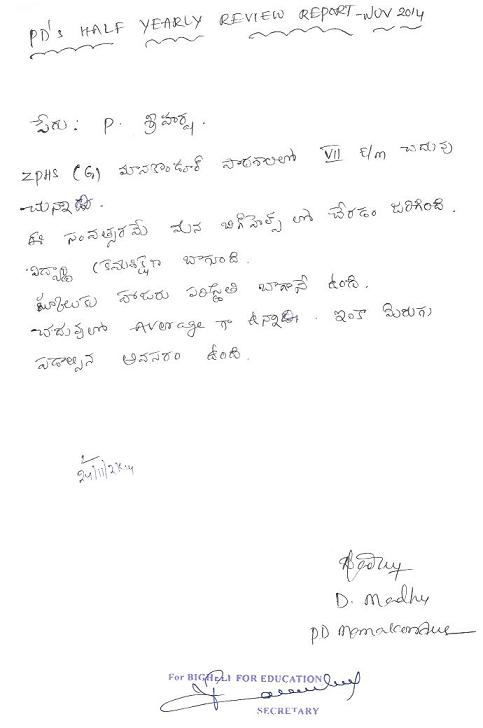 PD's HALF YEARLY REVIEW REPORT-NOV 2014
పేరు: P. శ్రీహర్ష.
ZPHS (G) మానకొండూర్ పాఠశాలలో VII E/m చదువు
చున్నాడు.
ఈ సంవత్సరమే మన బిగ్‌హెల్ప్ లో చేరడం జరిగింది.
విద్యార్థి క్రమశిక్షణగా బాగుంది.
స్కూలుకు హాజరు పరిస్థితి బాగానే ఉంది.
చదువులో Average గా ఉన్నాడు. ఇంకా మెరుగు
పడాల్సిన అవసరం ఉంది.
24/11/2014
D. Madhy
PD
For BIGHELP FOR EDUCATION
SECRETARY